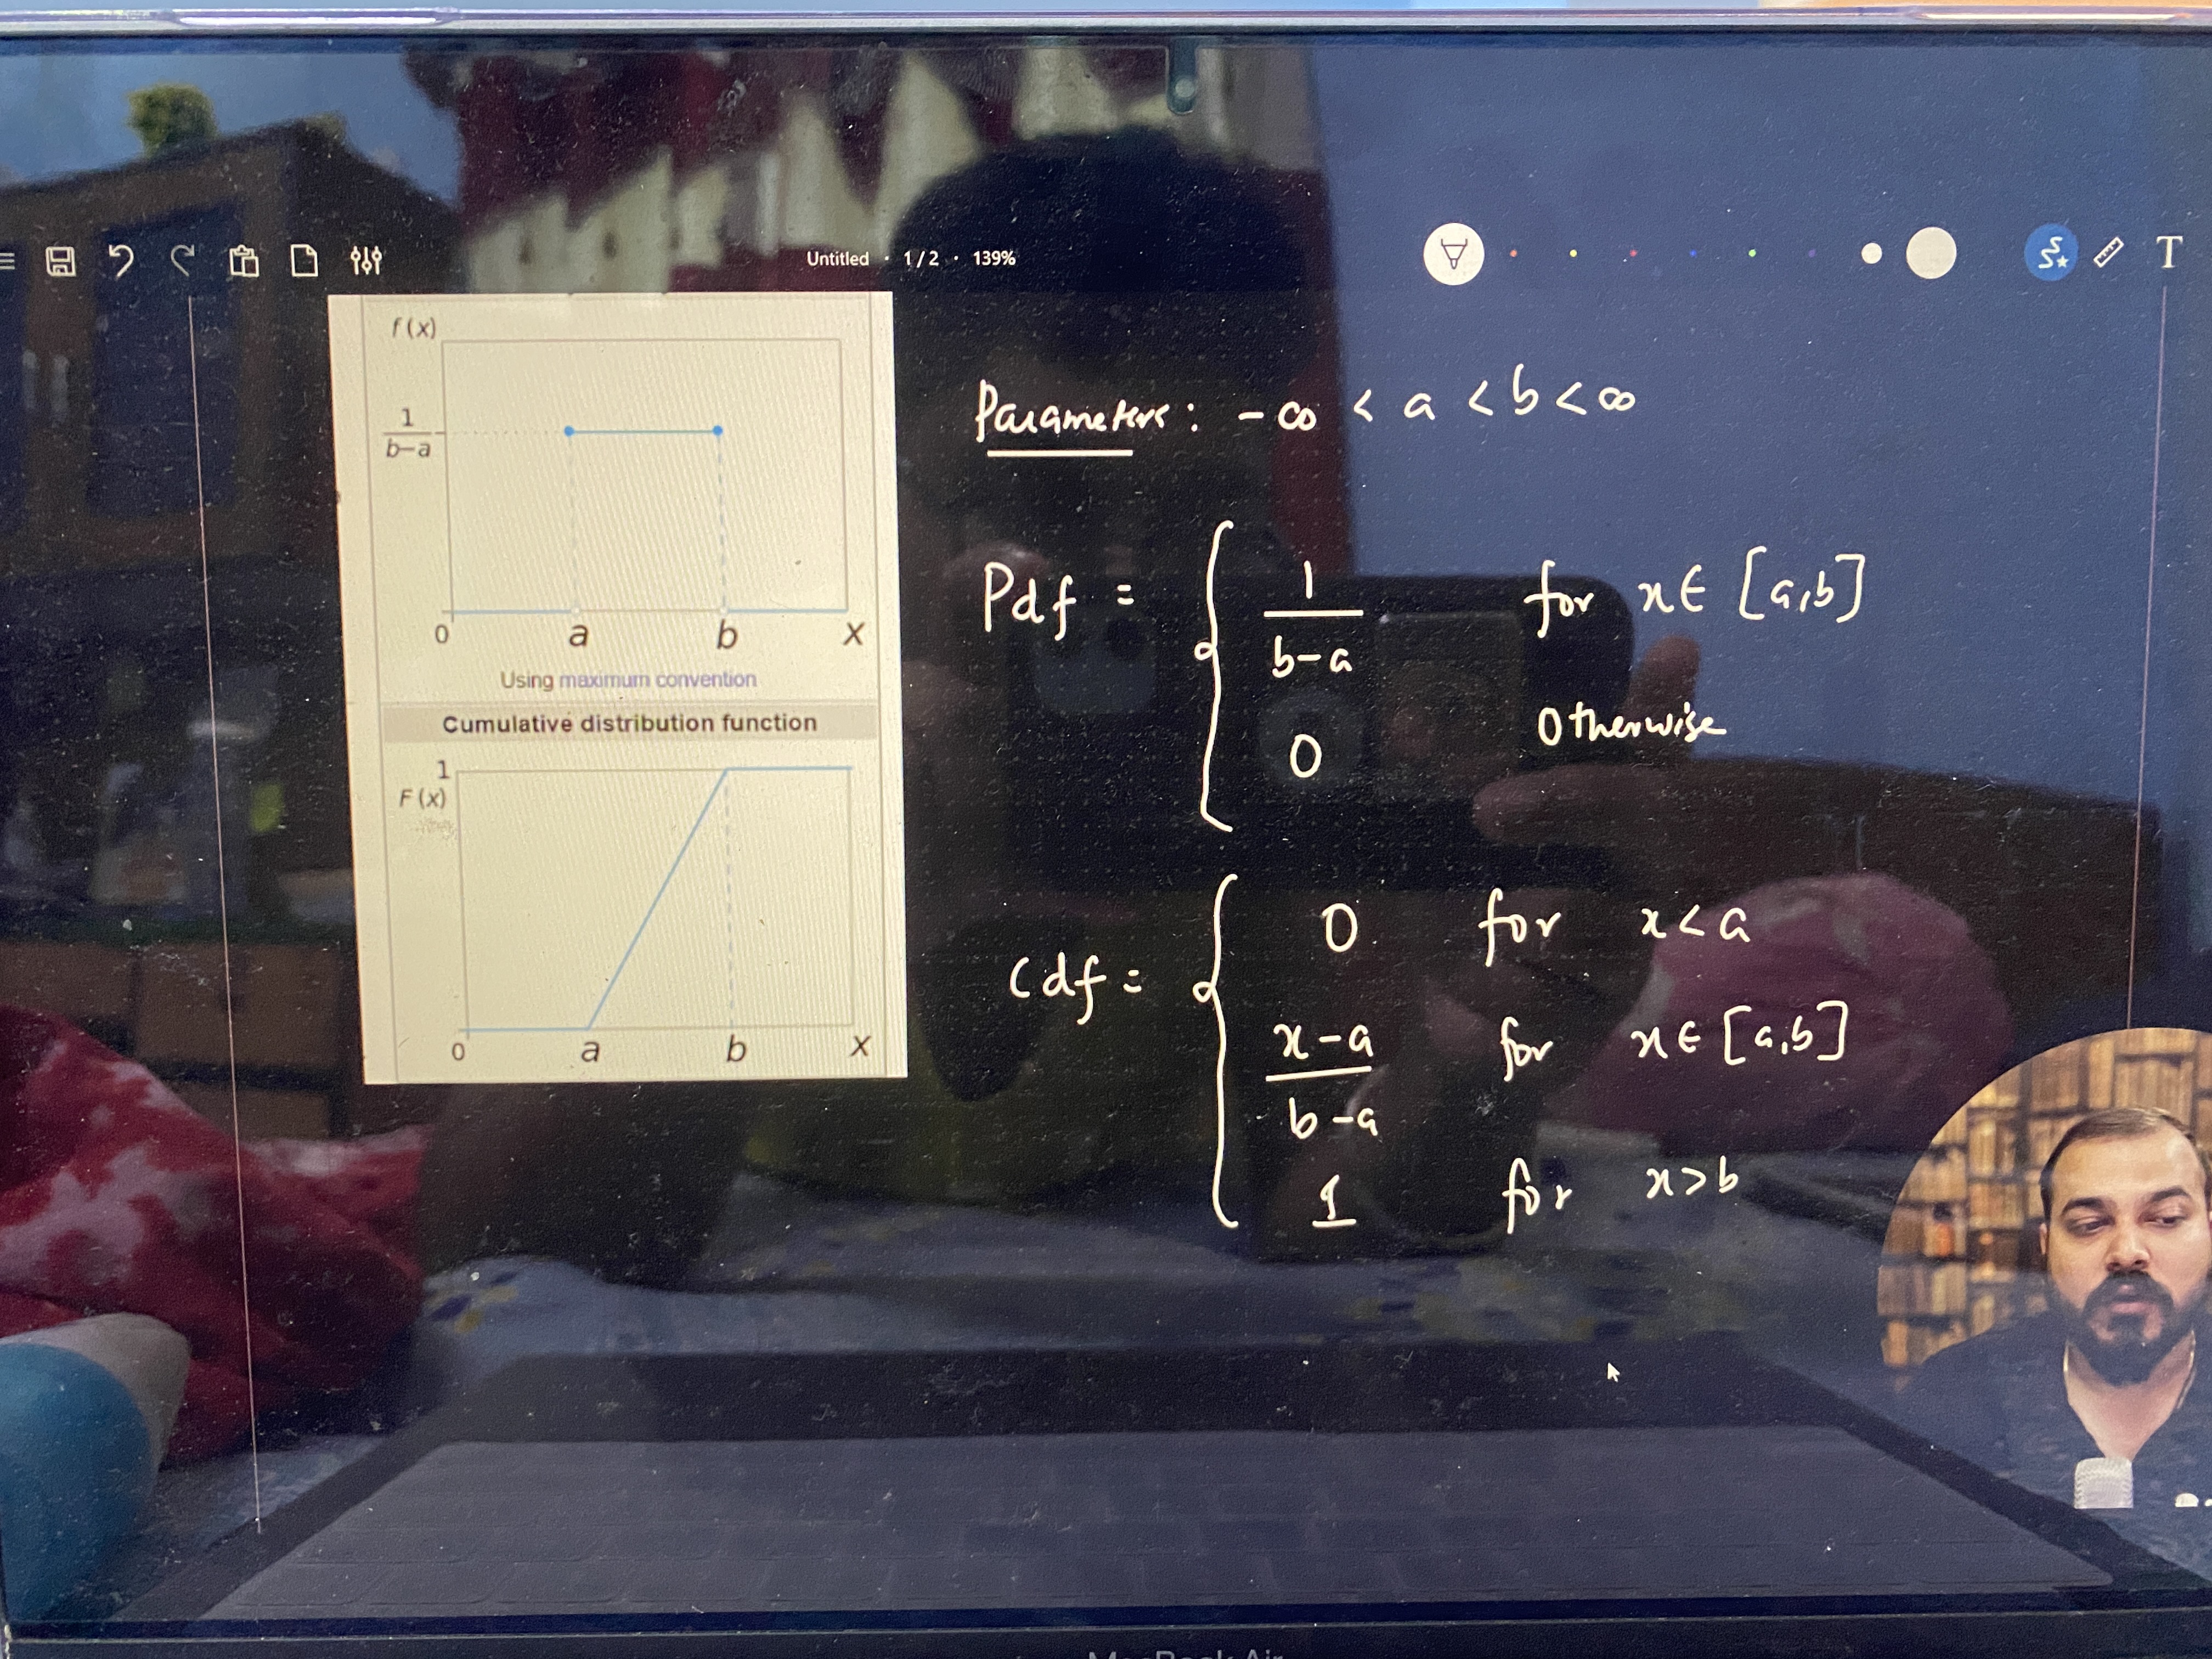 Untitled · 1/2 · 139%
T
f(x)
1
b-a
0 a b x
Using maximum convention
Cumulative distribution function
1
F(x)
0 a b x
Parameters : -∞ < a < b < ∞
Pdf = { 1/b-a for x ∈ [a,b]
0 Otherwise
Cdf = { 0 for x < a
x-a/b-a for x ∈ [a,b]
1 for x > b
MacBook Air